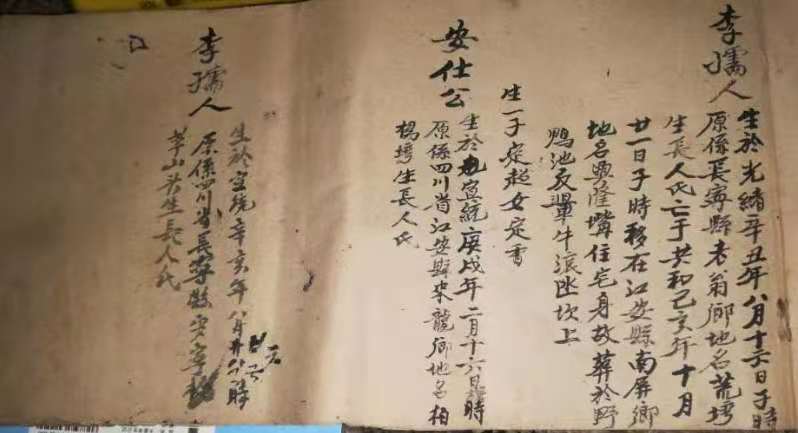 李孺人
生於光緒辛丑年八月十六日子時
原係長寧縣老翁鄉地名荒塆
生長人氏亡于共和己亥年十月
廿一日子時移在江安縣南屏鄉
地名興隆嘴住宅身故葬於野
鴨池反車牛滾凼坎上
生一子定超女定香
安仕公
生於宣統庚戌年二月十六日時
原係四川省江安縣來龍鄉地名柏
楊塆生長人氏
李孺人
生於宣統辛亥年八月廿八時
原係四川省長寧縣
茅山头生長人氏